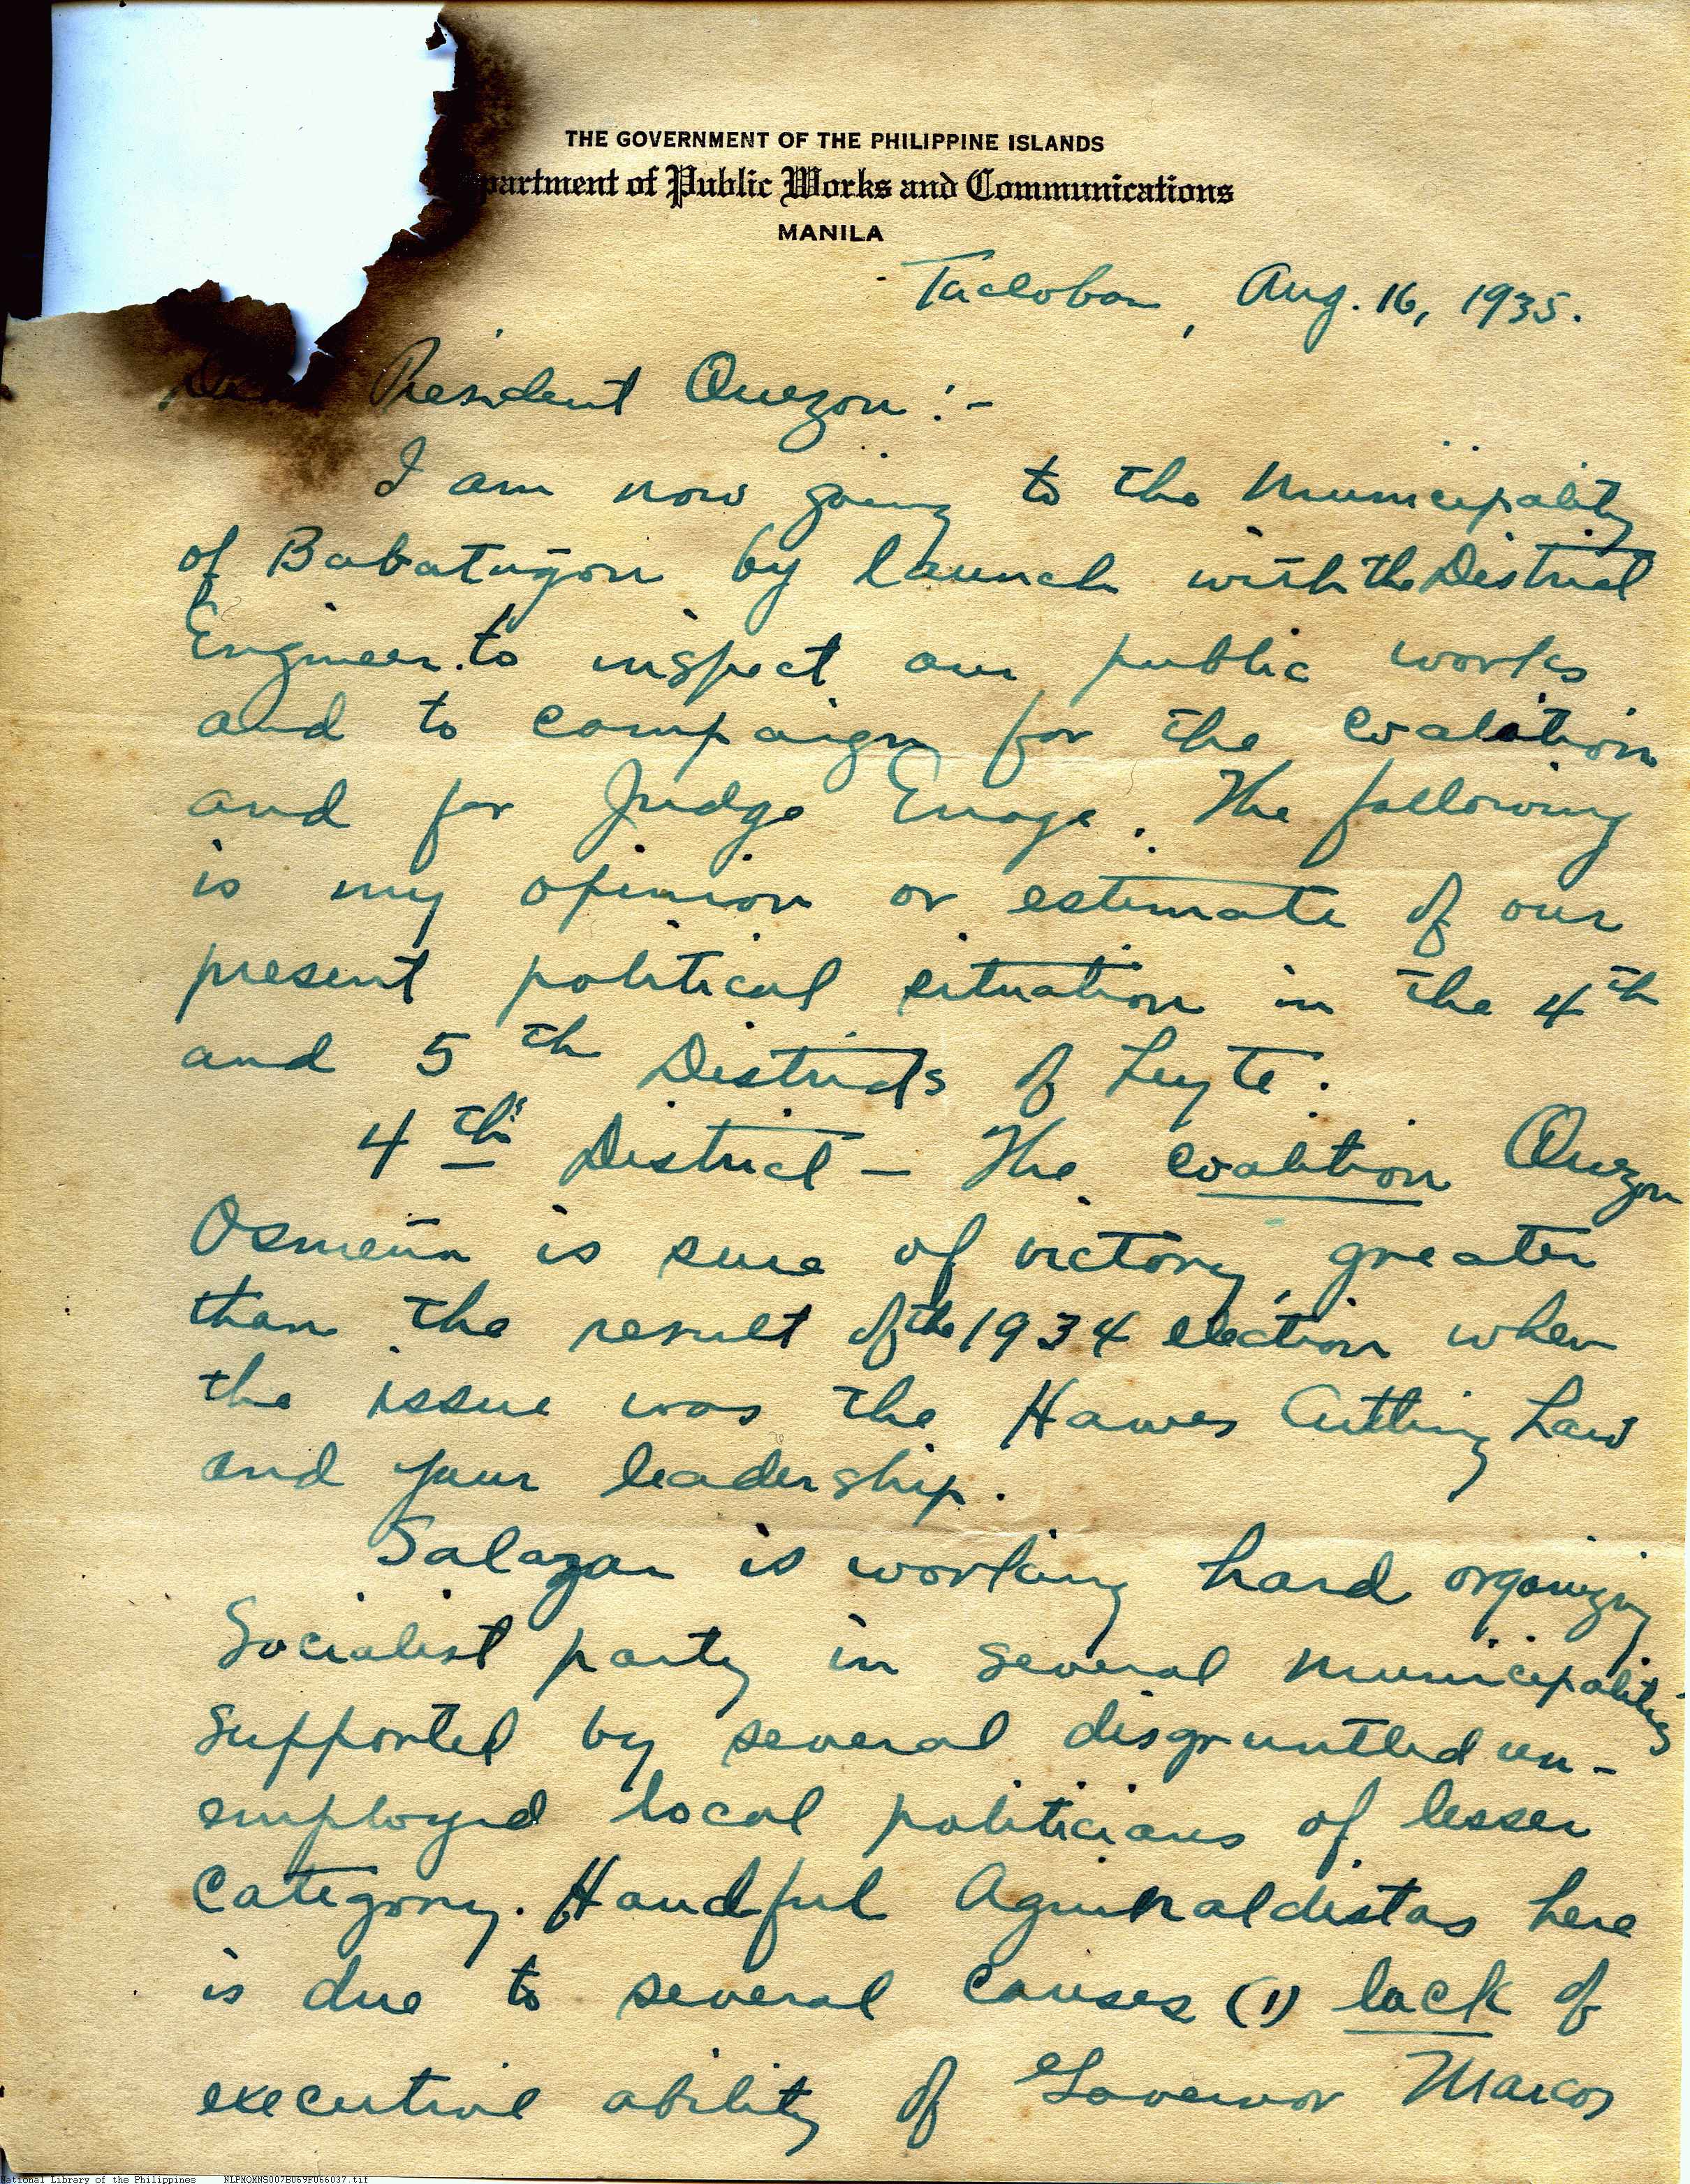 THE GOVERNMENT OF THE PHILIPPINE ISLANDS
partment of Public Works and Communications
MANILA
Tacloban, Aug. 16, 1935.
Dear President Quezon:-
I am now going to the Municipality
of Babatñgon by launch with the District
Engineer to inspect our public works
and to campaign for the Coalition
and for Judge Enage. The following
is my opinion or estimate of our
present political situation in the 4th
and 5th Districts of Leyte.
4th District — The Coalition Quezon
Osmeña is sure of victory, greater
than the result of the 1934 election when
the issue was the Hawes Cutting Law
and your leadership.
Salazar is working hard organizing
Socialist party in several municipalities
supported by several disgruntled un-
employed local politicians of lesser
category. Handful Aguinaldistas here
is due to several causes (1) lack of
executive ability of Governor Marcos
National Library of the Philippines NLPMQMNS007B069F066037.tif